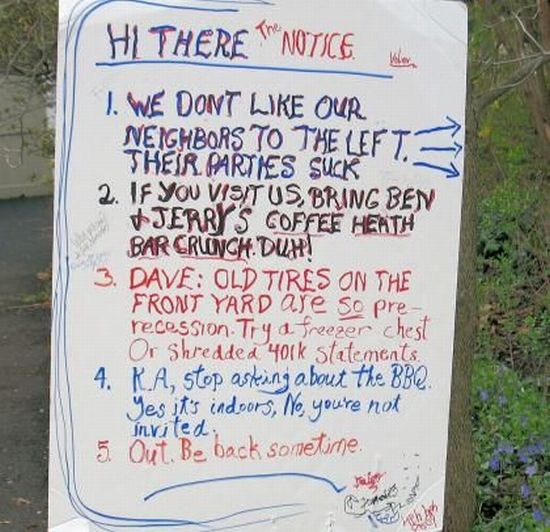 HI THERE The NOTICE
1. WE DONT LIKE OUR
NEIGHBORS TO THE LEFT.
THEIR PARTIES SUCK
2. IF YOU VISIT US, BRING BEN
& JERRY'S COFFEE HEATH
BAR CRUNCH. DUH!
3. DAVE: OLD TIRES ON THE
FRONT YARD are so pre-
recession. Try a freezer chest
Or Shredded 401k Statements.
4. K.A, stop asking about the BBQ.
Yes it's indoors, No, you're not
invited.
5. Out. Be back sometime.